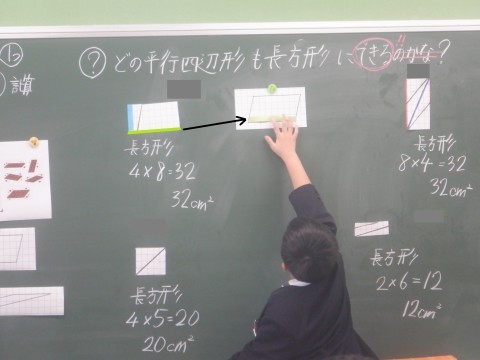 ? どの平行四辺形も長方形にできるのかな?
長方形
4×8=32
32cm²
長方形
8×4=32
32cm²
長方形
4×5=20
20cm²
長方形
2×6=12
12cm²